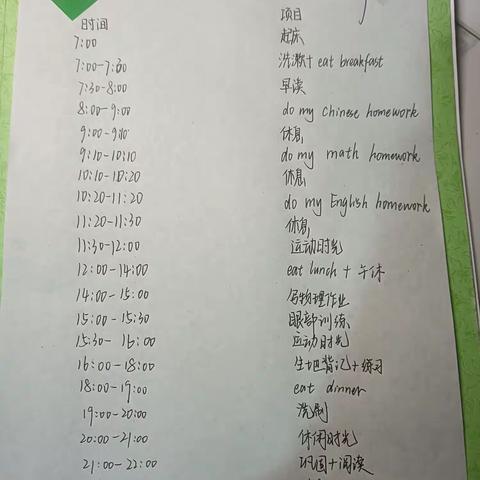 时间 项目
7:00 起床
7:00-7:30 洗漱+eat breakfast
7:30-8:00 早读
8:00-9:00 do my Chinese homework
9:00-9:10 休息
9:10-10:10 do my math homework
10:10-10:20 休息
10:20-11:20 do my English homework
11:20-11:30 休息
11:30-12:00 运动时光
12:00-14:00 eat lunch + 午休
14:00-15:00 写物理作业
15:00-15:30 眼部训练
15:30-16:00 运动时光
16:00-18:00 生地背记+练习
18:00-19:00 eat dinner
19:00-20:00 洗刷
20:00-21:00 休闲时光
21:00-22:00 巩固+阅读